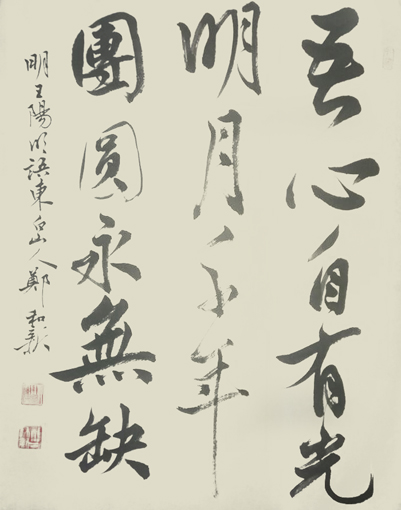 吾心自有光
明月千年
團圓永無缺
明王陽明語東白山人鄭和新